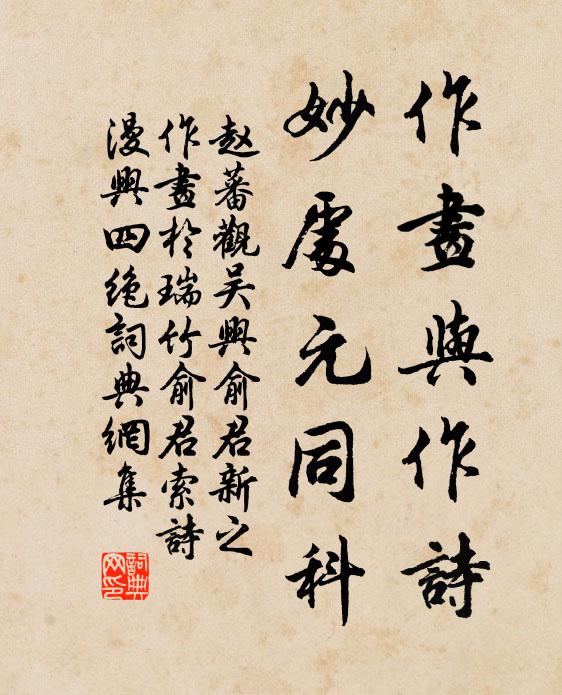 作畫與作詩
妙處元同科
赵蕃觀吴興俞君新之
作畫於瑞竹俞君索詩
漫興四绝詞典網集
詞典
网印